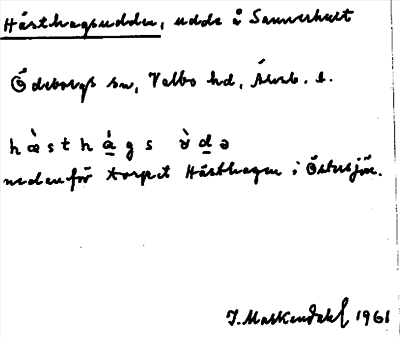 Hästhagsudden, udde å Sannerhult
Ödeborgs sn, Valbo hd, Älvsb. l.
h æ̀ s t h á̱ g s ù d̲ ə
nedanför torpet Hästhagen i Östersjön.
J. Mackendahl 1961